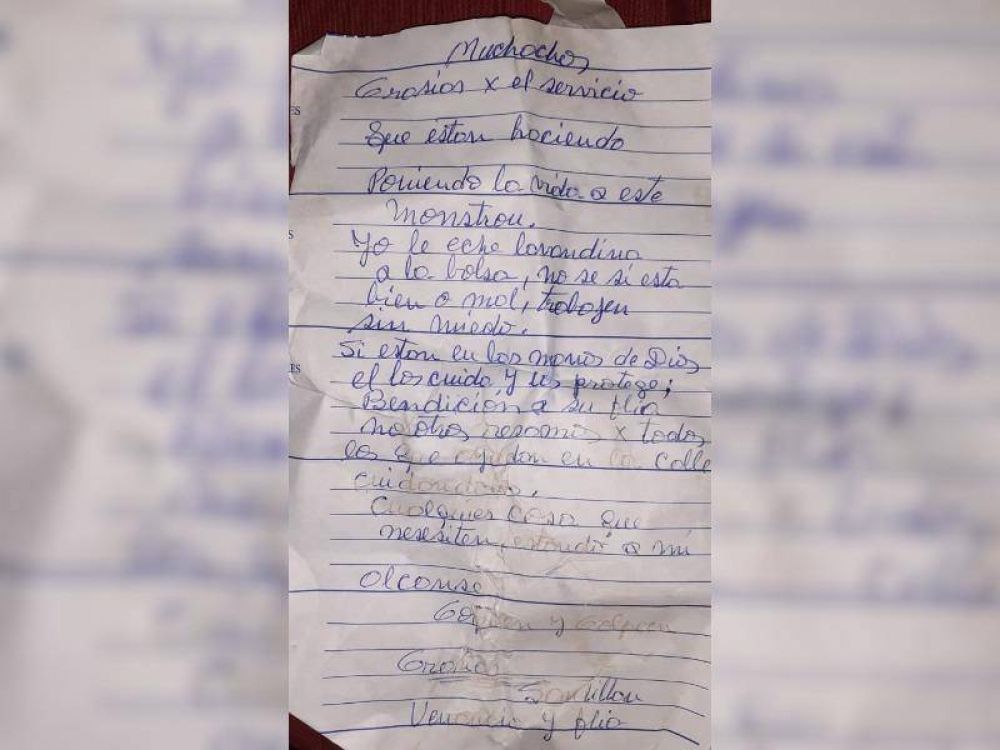 Muchachos
Grasias x el servicio
Que estan haciendo
Poniendo la vida a este
monstrou.
Yo le eche lavandina
a la bolsa, no se si esta
bien o mal, trabajen
sin miedo.
Si estan en las manos de Dios
el los cuida y les protege;
Bendición a su flia
nosotros resamos x todos
los que ayudan en la calle
cuidandonos.
Cualquier cosa que
nesesiten, a mi
alcanse
Golpeen y Golpeen
Grasias
Santillan
Venancio y flia
ES
S
ES